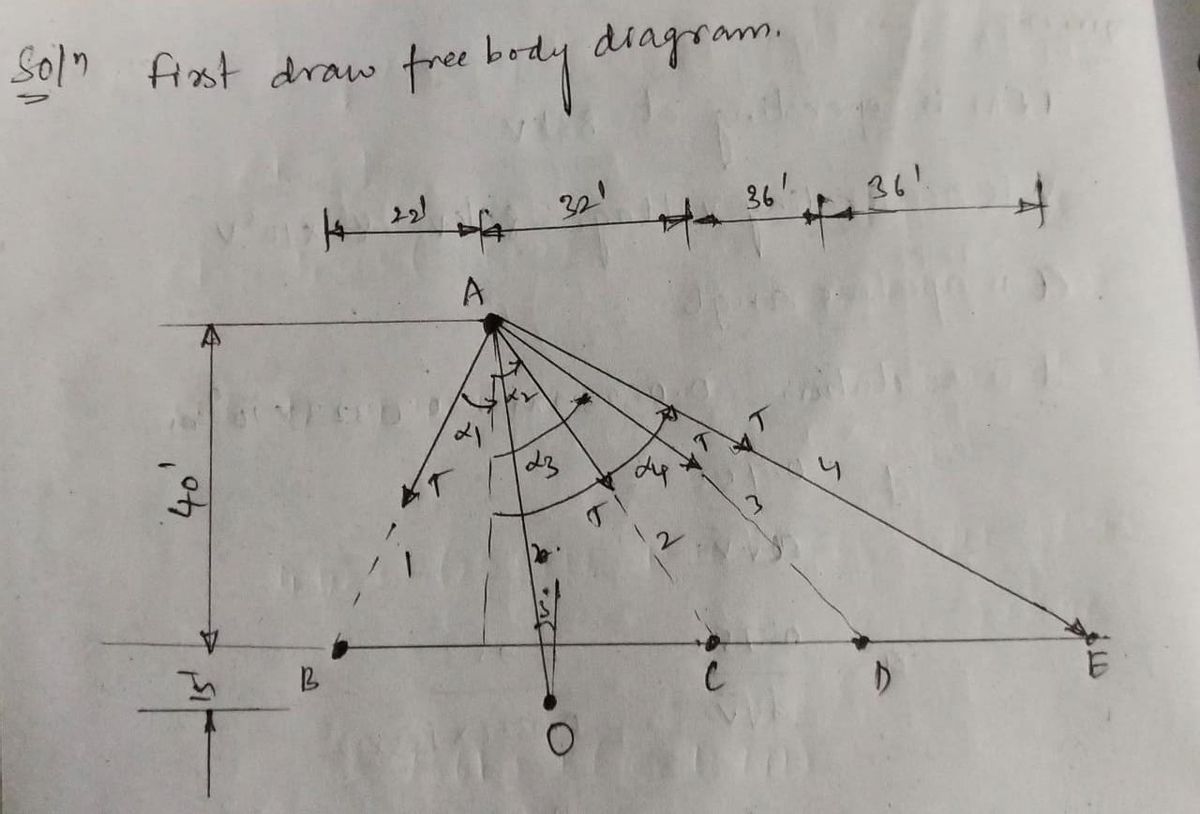 Soln first draw free body diagram.
22' 32' 36' 36'
A
α1 α2
α3 α4
T T T T
40'
1 2 3 4
5°
B C D E
15'
O